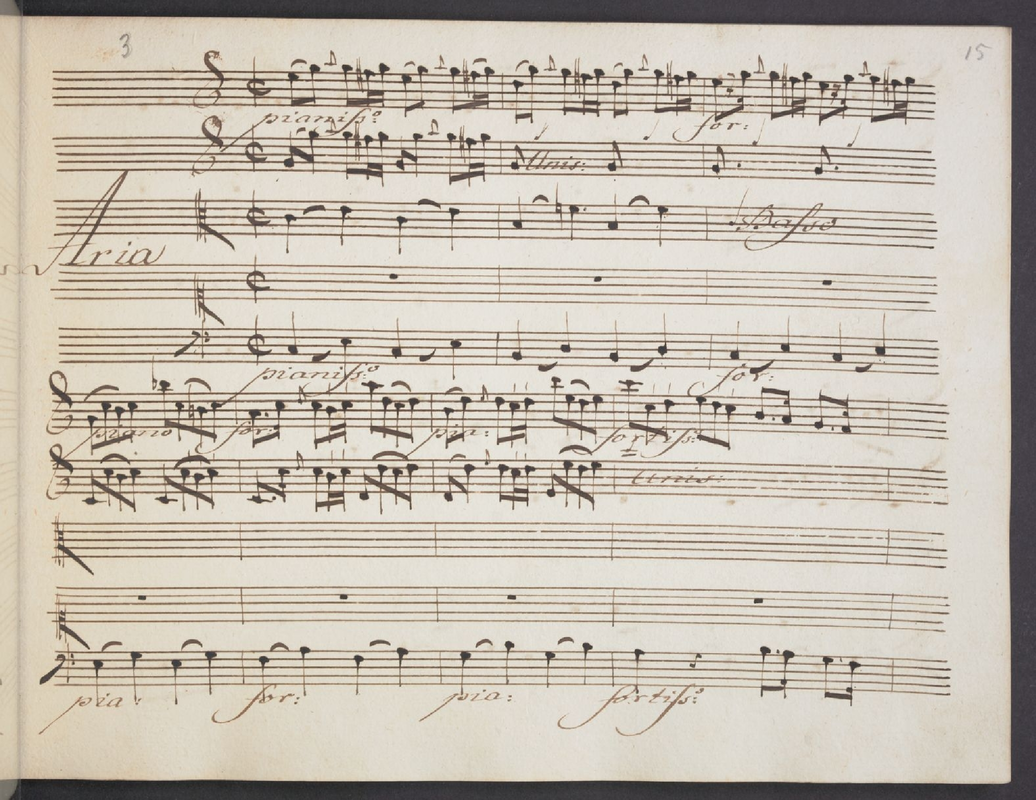 3 15
pianiſs:o for:
Unis:
Basso
Aria
pianiſs:o for:
piano for: pia: fortiſs:o
Unis:
pia: for: pia: fortiſs:o